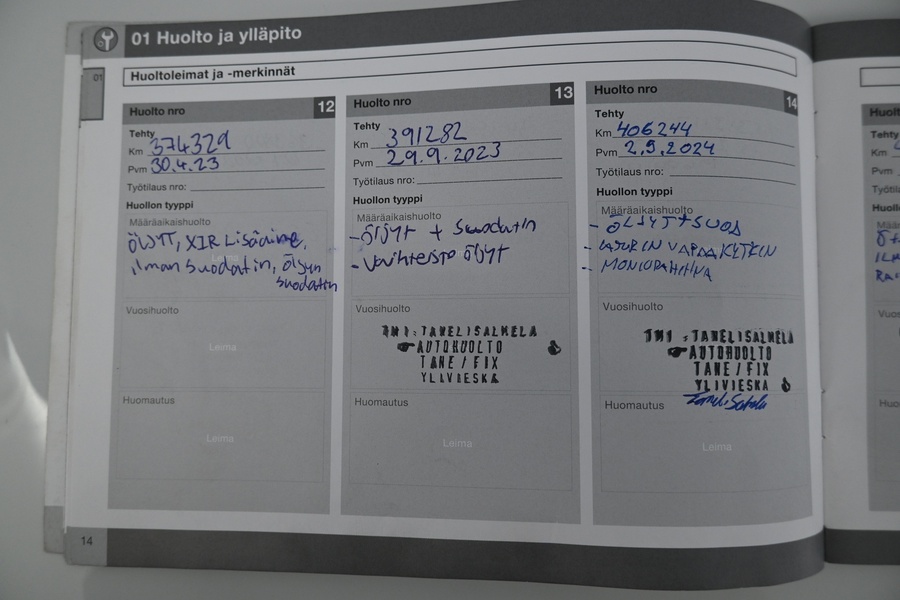 01 Huolto ja ylläpito
01
Huoltoleimat ja -merkinnät
Huolto nro 12
Tehty
Km 374329
Pvm 30.4.23
Työtilaus nro:
Huollon tyyppi
Määräaikaishuolto
ÖLJYT, XIR Lisäaine,
ilman suodatin, öljyn
suodatin
Vuosihuolto
Leima
Huomautus
Leima
Huolto nro 13
Tehty
Km 391282
Pvm 29.9.2023
Työtilaus nro:
Huollon tyyppi
Määräaikaishuolto
- Öljyt + Suodatin
- Vaihteisto öljyt
Vuosihuolto
TMI: TANELI SALMELA
AUTOHUOLTO
TANE/FIX
YLIVIESKA
Huomautus
Leima
Huolto nro 14
Tehty
Km 406244
Pvm 2.9.2024
Työtilaus nro:
Huollon tyyppi
Määräaikaishuolto
- ÖLJYT + SUOD
- LATURIN VAPAAKYTKIN
- MONIURAHIHNA
Vuosihuolto
TMI: TANELI SALMELA
AUTOHUOLTO
TANE/FIX
YLIVIESKA
Huomautus
Leima
Huolto
Tehty
Km
Pvm
14